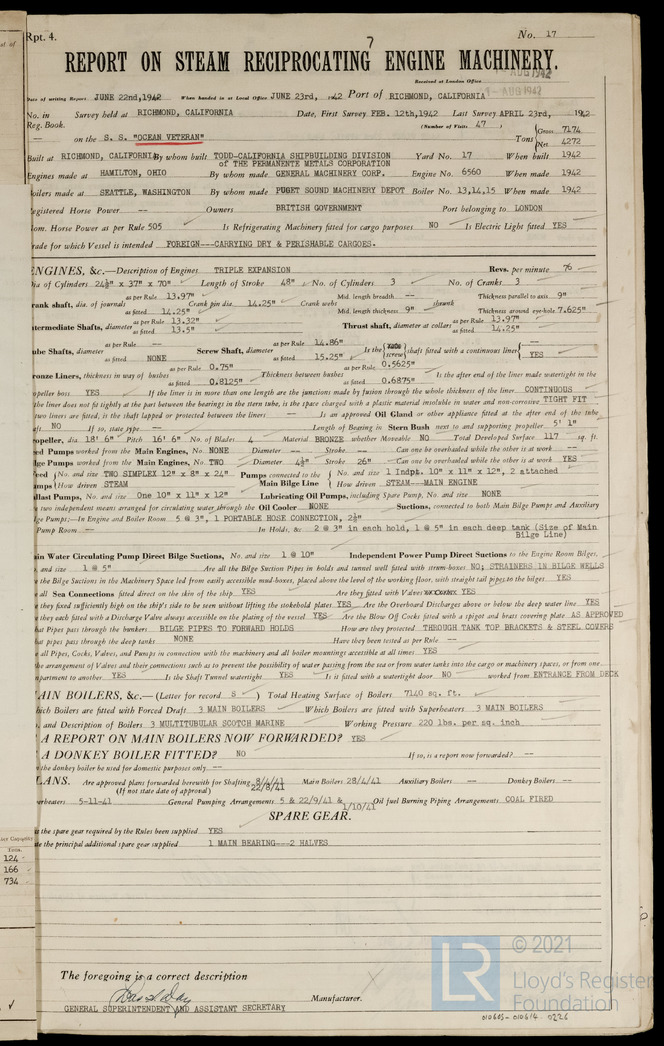 Rpt. 4.
7
No. 17
REPORT ON STEAM RECIPROCATING ENGINE MACHINERY.
Received at London Office
AUG 1942
1 - AUG 1942
Date of writing Report JUNE 22nd, 1942 When handed in at Local Office JUNE 23rd, 1942 Port of RICHMOND, CALIFORNIA
No. in Survey held at RICHMOND, CALIFORNIA Date, First Survey FEB. 12th, 1942 Last Survey APRIL 23rd, 1942
Reg. Book. (Number of Visits 47
on the S. S. "OCEAN VETERAN" Tons { Gross 7174
Net 4272
Built at RICHMOND, CALIFORNIA By whom built TODD-CALIFORNIA SHIPBUILDING DIVISION of THE PERMANENTE METALS CORPORATION Yard No. 17 When built 1942
Engines made at HAMILTON, OHIO By whom made GENERAL MACHINERY CORP. Engine No. 6560 When made 1942
Boilers made at SEATTLE, WASHINGTON By whom made PUGET SOUND MACHINERY DEPOT Boiler No. 13,14,15 When made 1942
Registered Horse Power -- Owners BRITISH GOVERNMENT Port belonging to LONDON
Nom. Horse Power as per Rule 505 Is Refrigerating Machinery fitted for cargo purposes NO Is Electric Light fitted YES
Trade for which Vessel is intended FOREIGN---CARRYING DRY & PERISHABLE CARGOES.
ENGINES, &c.—Description of Engines TRIPLE EXPANSION Revs. per minute 76
Dia of Cylinders 24½" x 37" x 70" Length of Stroke 48" No. of Cylinders 3 No. of Cranks 3
Crank shaft, dia. of journals as per Rule 13.97" as fitted 14.25" Crank pin dia. 14.25" Crank webs Mid. length breadth -- shrunk Thickness parallel to axis 9"
Mid. length thickness 9" Thickness around eye-hole 7.625"
Intermediate Shafts, diameter as per Rule 13.32" as fitted 13.5" Thrust shaft, diameter at collars as per Rule 13.97" as fitted 14.25"
Tube Shafts, diameter as per Rule -- as fitted NONE Screw Shaft, diameter as per Rule 14.86" as fitted 15.25" Is the { tube screw } shaft fitted with a continuous liner { -- YES
Bronze Liners, thickness in way of bushes as per Rule 0.75" as fitted 0.8125" Thickness between bushes as per Rule 0.5625" as fitted 0.6875" Is the after end of the liner made watertight in the
propeller boss YES If the liner is in more than one length are the junctions made by fusion through the whole thickness of the liner CONTINUOUS
the liner does not fit tightly at the part between the bearings in the stern tube, is the space charged with a plastic material insoluble in water and non-corrosive TIGHT FIT
two liners are fitted, is the shaft lapped or protected between the liners -- Is an approved Oil Gland or other appliance fitted at the after end of the tube
shaft NO If so, state type -- Length of Bearing in Stern Bush next to and supporting propeller 5' 1"
Propeller, dia 18' 6" Pitch 16' 6" No. of Blades 4 Material BRONZE whether Moveable NO Total Developed Surface 117 sq. ft.
Feed Pumps worked from the Main Engines, No. NONE Diameter -- Stroke -- Can one be overhauled while the other is at work --
Bilge Pumps worked from the Main Engines, No. TWO Diameter 4½" Stroke 26" Can one be overhauled while the other is at work YES
Feed Pumps { No. and size TWO SIMPLEX 12" x 8" x 24" Pumps connected to the Main Bilge Line { No. and size 1 Indpt. 10" x 11" x 12", 2 attached
How driven STEAM How driven STEAM---MAIN ENGINE
Ballast Pumps, No. and size One 10" x 11" x 12" Lubricating Oil Pumps, including Spare Pump, No. and size NONE
two independent means arranged for circulating water through the Oil Cooler NONE Suctions, connected to both Main Bilge Pumps and Auxiliary
Bilge Pumps;—In Engine and Boiler Room 5 @ 3", 1 PORTABLE HOSE CONNECTION, 2½"
Pump Room -- In Holds, &c. 2 @ 3" in each hold, 1 @ 5" in each deep tank (Size of Main
Bilge Line)
Main Water Circulating Pump Direct Bilge Suctions, No. and size 1 @ 10" Independent Power Pump Direct Suctions to the Engine Room Bilges,
and size 1 @ 5" Are all the Bilge Suction Pipes in holds and tunnel well fitted with strum-boxes NO; STRAINERS IN BILGE WELLS
the Bilge Suctions in the Machinery Space led from easily accessible mud-boxes, placed above the level of the working floor, with straight tail pipes to the bilges YES
all Sea Connections fitted direct on the skin of the ship YES Are they fitted with Valves or Cocks YES
they fixed sufficiently high on the ship's side to be seen without lifting the stokehold plates YES Are the Overboard Discharges above or below the deep water line YES
they each fitted with a Discharge Valve always accessible on the plating of the vessel YES Are the Blow Off Cocks fitted with a spigot and brass covering plate AS APPROVED
What Pipes pass through the bunkers BILGE PIPES TO FORWARD HOLDS How are they protected THROUGH TANK TOP BRACKETS & STEEL COVERS
What pipes pass through the deep tanks NONE Have they been tested as per Rule --
all Pipes, Cocks, Valves, and Pumps in connection with the machinery and all boiler mountings accessible at all times YES
the arrangement of Valves and their connections such as to prevent the possibility of water passing from the sea or from water tanks into the cargo or machinery spaces, or from one
compartment to another YES Is the Shaft Tunnel watertight YES Is it fitted with a watertight door NO worked from ENTRANCE FROM DECK
MAIN BOILERS, &c.—(Letter for record S ) Total Heating Surface of Boilers 7140 sq. ft.
Which Boilers are fitted with Forced Draft 3 MAIN BOILERS Which Boilers are fitted with Superheaters 3 MAIN BOILERS
No. and Description of Boilers 3 MULTITUBULAR SCOTCH MARINE Working Pressure 220 lbs. per sq. inch
A REPORT ON MAIN BOILERS NOW FORWARDED? YES
A DONKEY BOILER FITTED? NO If so, is a report now forwarded? --
the donkey boiler be used for domestic purposes only --
PLANS. Are approved plans forwarded herewith for Shafting 8/4/41 22/8/41 Main Boilers 28/4/41 Auxiliary Boilers -- Donkey Boilers --
(If not state date of approval)
Superheaters 5-11-41 General Pumping Arrangements 5 & 22/9/41 & 1/10/41 Oil fuel Burning Piping Arrangements COAL FIRED
SPARE GEAR.
the spare gear required by the Rules been supplied YES
the principal additional spare gear supplied 1 MAIN BEARING---2 HALVES
124
166
734
The foregoing is a correct description
Manufacturer.
GENERAL SUPERINTENDENT AND ASSISTANT SECRETARY
LR
© 2021
Lloyd's Register
Foundation
010603-010614-0226